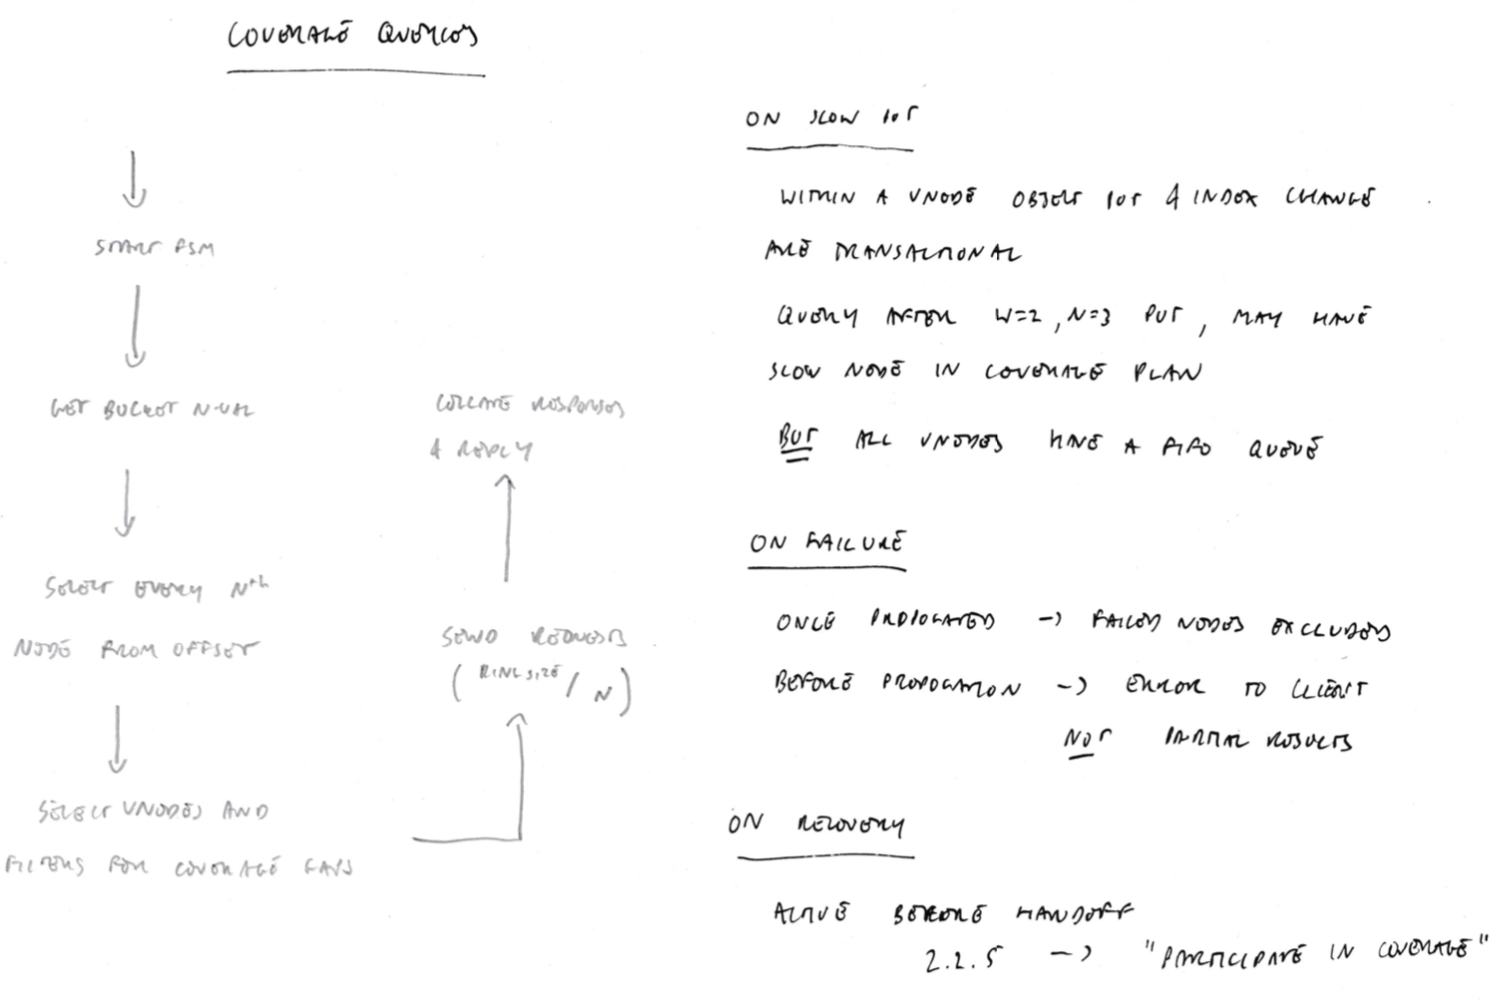 COVERAGE QUERIES
START FSM
GET BUCKET N-VAL
SELECT EVERY Nth
NODE FROM OFFSET
SELECT VNODES AND
FILTERS FOR COVERAGE GAPS
SEND REQUESTS
( RING SIZE / N )
COLLATE RESPONSES
& REPLY
ON SLOW PUT
WITHIN A VNODE OBJECT PUT & INDEX CHANGE
ARE TRANSACTIONAL
QUERY AFTER W=2, N=3 PUT, MAY HAVE
SLOW NODE IN COVERAGE PLAN
BUT ALL VNODES HAVE A FIFO QUEUE
ON FAILURE
ONCE PROPOGATED -> FAILED NODES EXCLUDED
BEFORE PROPOGATION -> ERROR TO CLIENT
NOT PARTIAL RESULTS
ON RECOVERY
ACTIVE BEFORE HANDOFF
2.2.5 -> "PARTICIPATE IN COVERAGE"